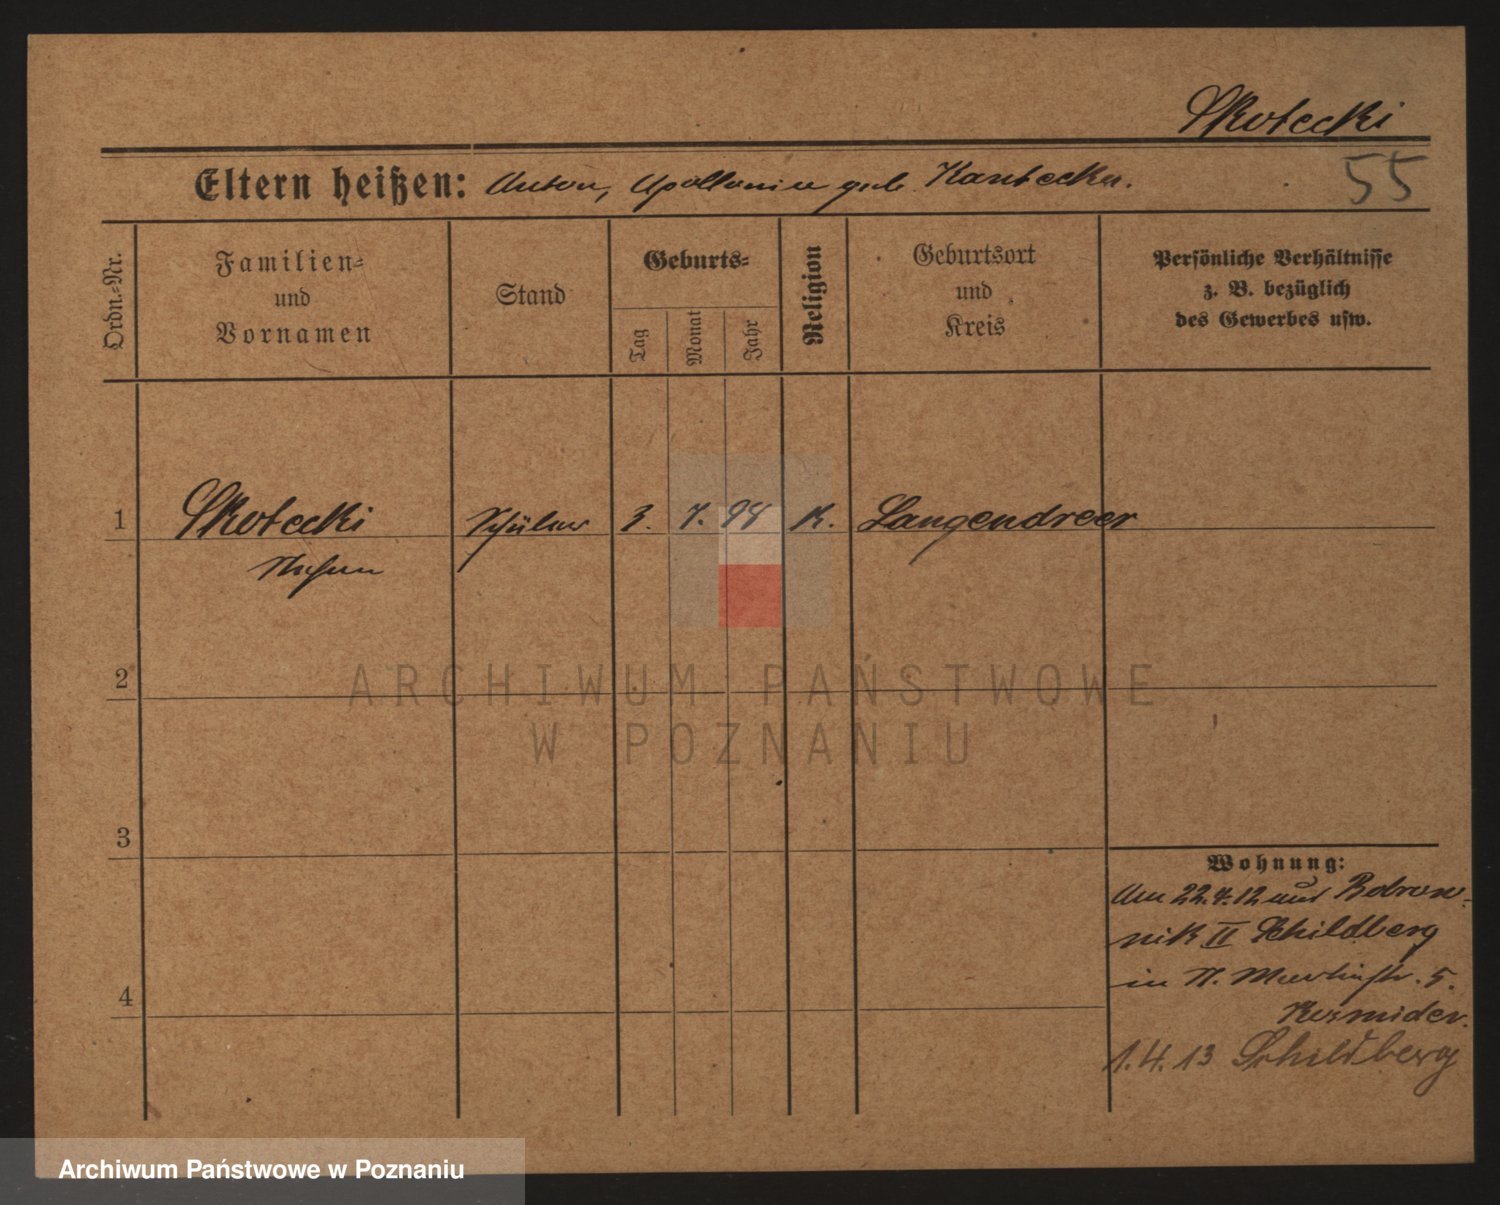 Skotecki
Eltern heißen: Anton, Apollonia geb. Kantecka.
55
Ordn.-Nr.
Familien-
und
Vornamen
Stand
Geburts-
Tag
Monat
Jahr
Religion
Geburtsort
und
Kreis
Persönliche Verhältnisse
z. B. bezüglich
des Gewerbes usw.
1 Skotecki Schüler 3. 7. 98 K. Langendreer
2
3
4
Wohnung:
Am 22.4.12 aus Bobrow-
nik II Schildberg
in St. Martinstr. 5.
1.4.13 Schildberg
ARCHIWUM PAŃSTWOWE
W POZNANIU
Archiwum Państwowe w Poznaniu